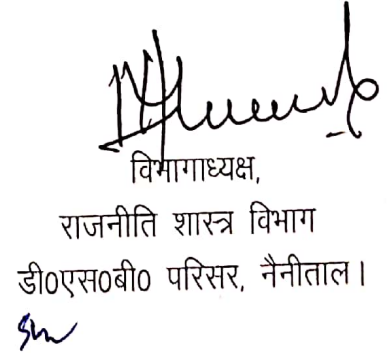 विभागाध्यक्ष,
राजनीति शास्त्र विभाग
डी0एस0बी0 परिसर, नैनीताल।